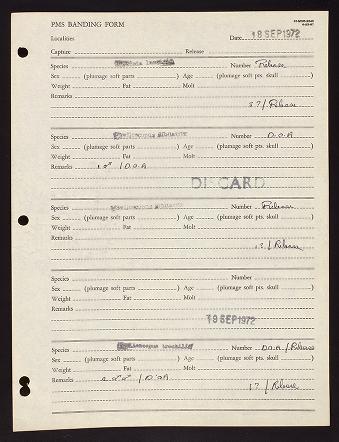 PMS BANDING FORM
Localities Date 18 SEP 1972
Capture Release
Species Number Release
Sex (plumage soft parts ) Age (plumage soft pts. skull )
Weight Fat Molt
Remarks
Release
Species Number D.O.A
Sex (plumage soft parts ) Age (plumage soft pts. skull )
Weight Fat Molt
Remarks 1 ♂ / D.O.A
DISCARD
Species Number Release
Sex (plumage soft parts ) Age (plumage soft pts. skull )
Weight Fat Molt
Remarks
1? / Release
Species Number
Sex (plumage soft parts ) Age (plumage soft pts. skull )
Weight Fat Molt
Remarks
18 SEP 1972
Species Number D.O.A / Release
Sex (plumage soft parts ) Age (plumage soft pts. skull )
Weight Fat Molt
Remarks 2 ♂♂ / D.O.A
1? / Release